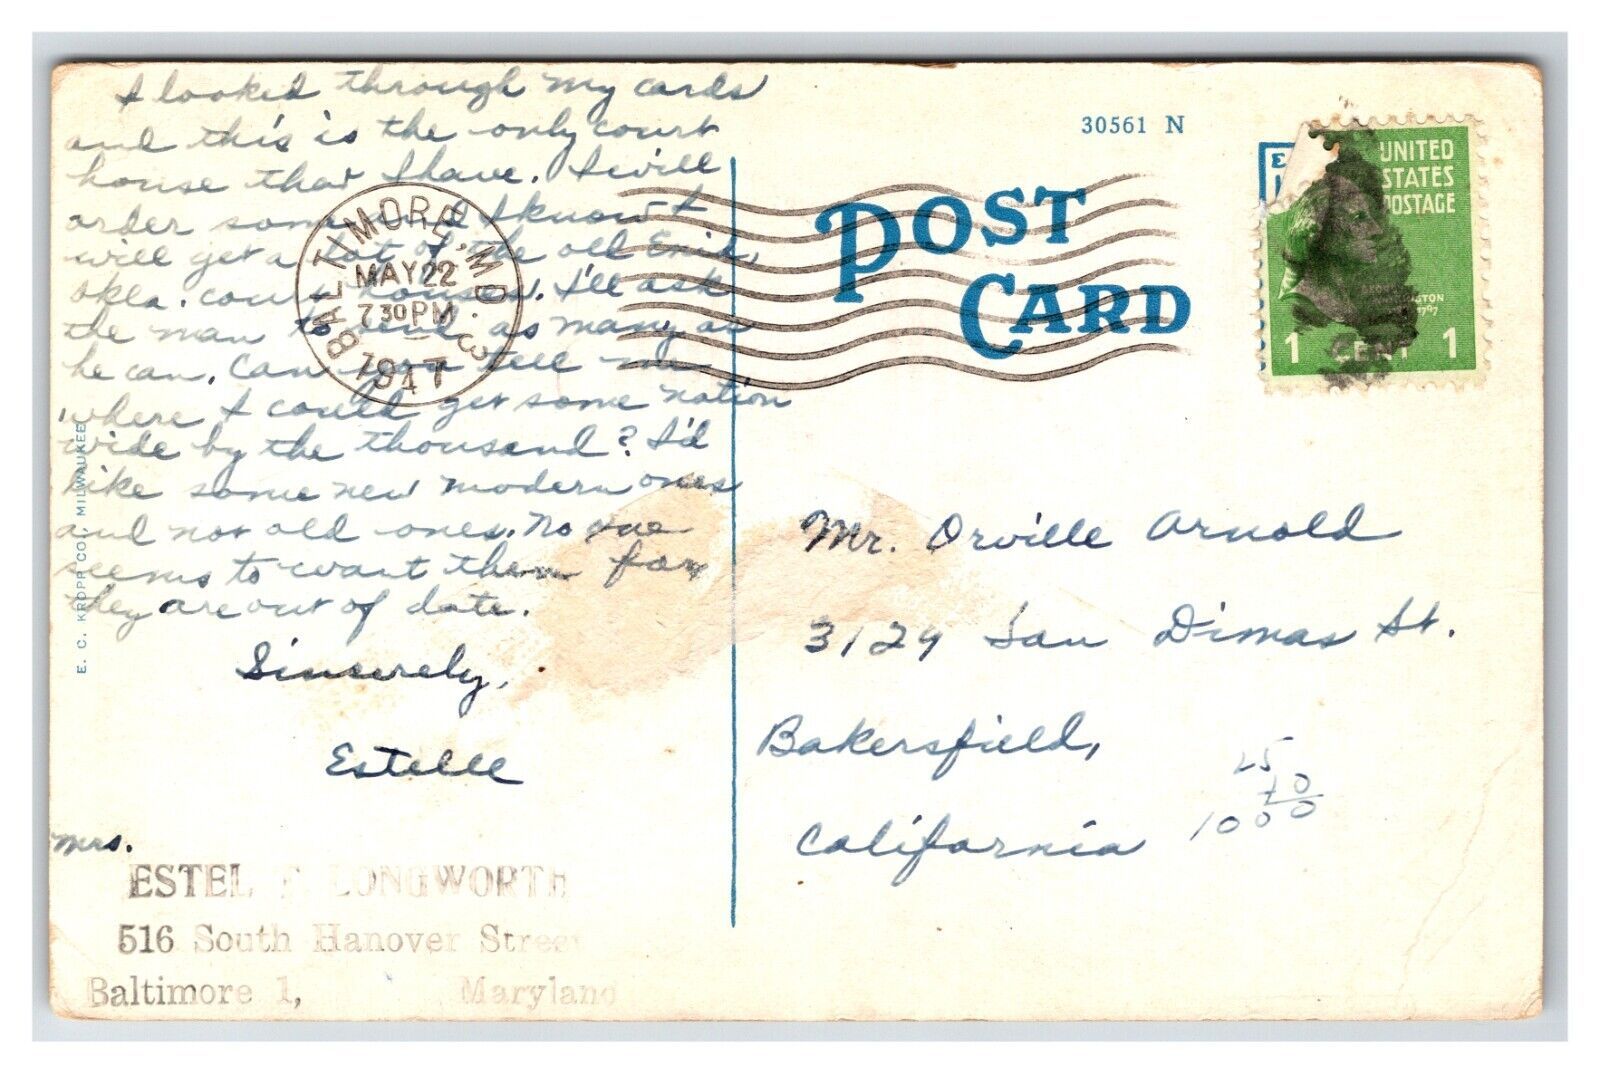 I looked through my cards
and this is the only court
house that I have. I will
order some I know I
will get a lot of the old Enid,
Okla. court houses. I'll ask
the man to send as many as
he can. Can you tell me
where I could get some nation
wide by the thousand? I'd
like some new modern ones
and not old ones. No one
seems to want them for
they are out of date.
Sincerely,
Estelle
Mrs.
ESTEL F LONGWORTH
516 South Hanover Street
Baltimore 1, Maryland
E. C. KROPP CO., MILWAUKEE
BALTIMORE, MD. 3
MAY 22
730 PM
1947
30561 N
POST
CARD
UNITED
STATES
POSTAGE
1 CENT 1
Mr. Orville Arnold
3129 San Dimas St.
Bakersfield,
California
25
10
1000